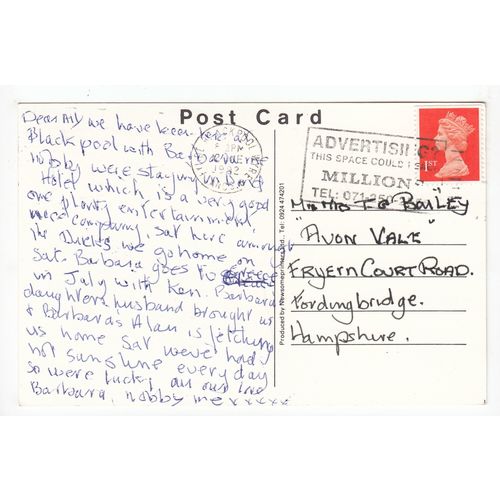 Post Card
Dear All we have been here at
Blackpool with Barbara
Nobby were staying
Hotel which is a very good
one plenty entertainment,
nice company, sat here among
the Ducks we go home on
Sat. Barbara goes to
in July with Ken. Barbara
daughters husband brought us
& Barbaras Alan is fetching
us home Sat weve had
hot sunshine every day
so were lucky all our love
Barbara, nobby me x x x x x
1992
ADVERTISING?
THIS SPACE COULD
MILLION
TEL: 071
1ST
Mr & Mrs F G BAILEY
"AVON VALE"
FRYERN COURT ROAD.
Fordingbridge.
Hampshire.
Produced by Newsome Printers Ltd., Tel: 0924 474201